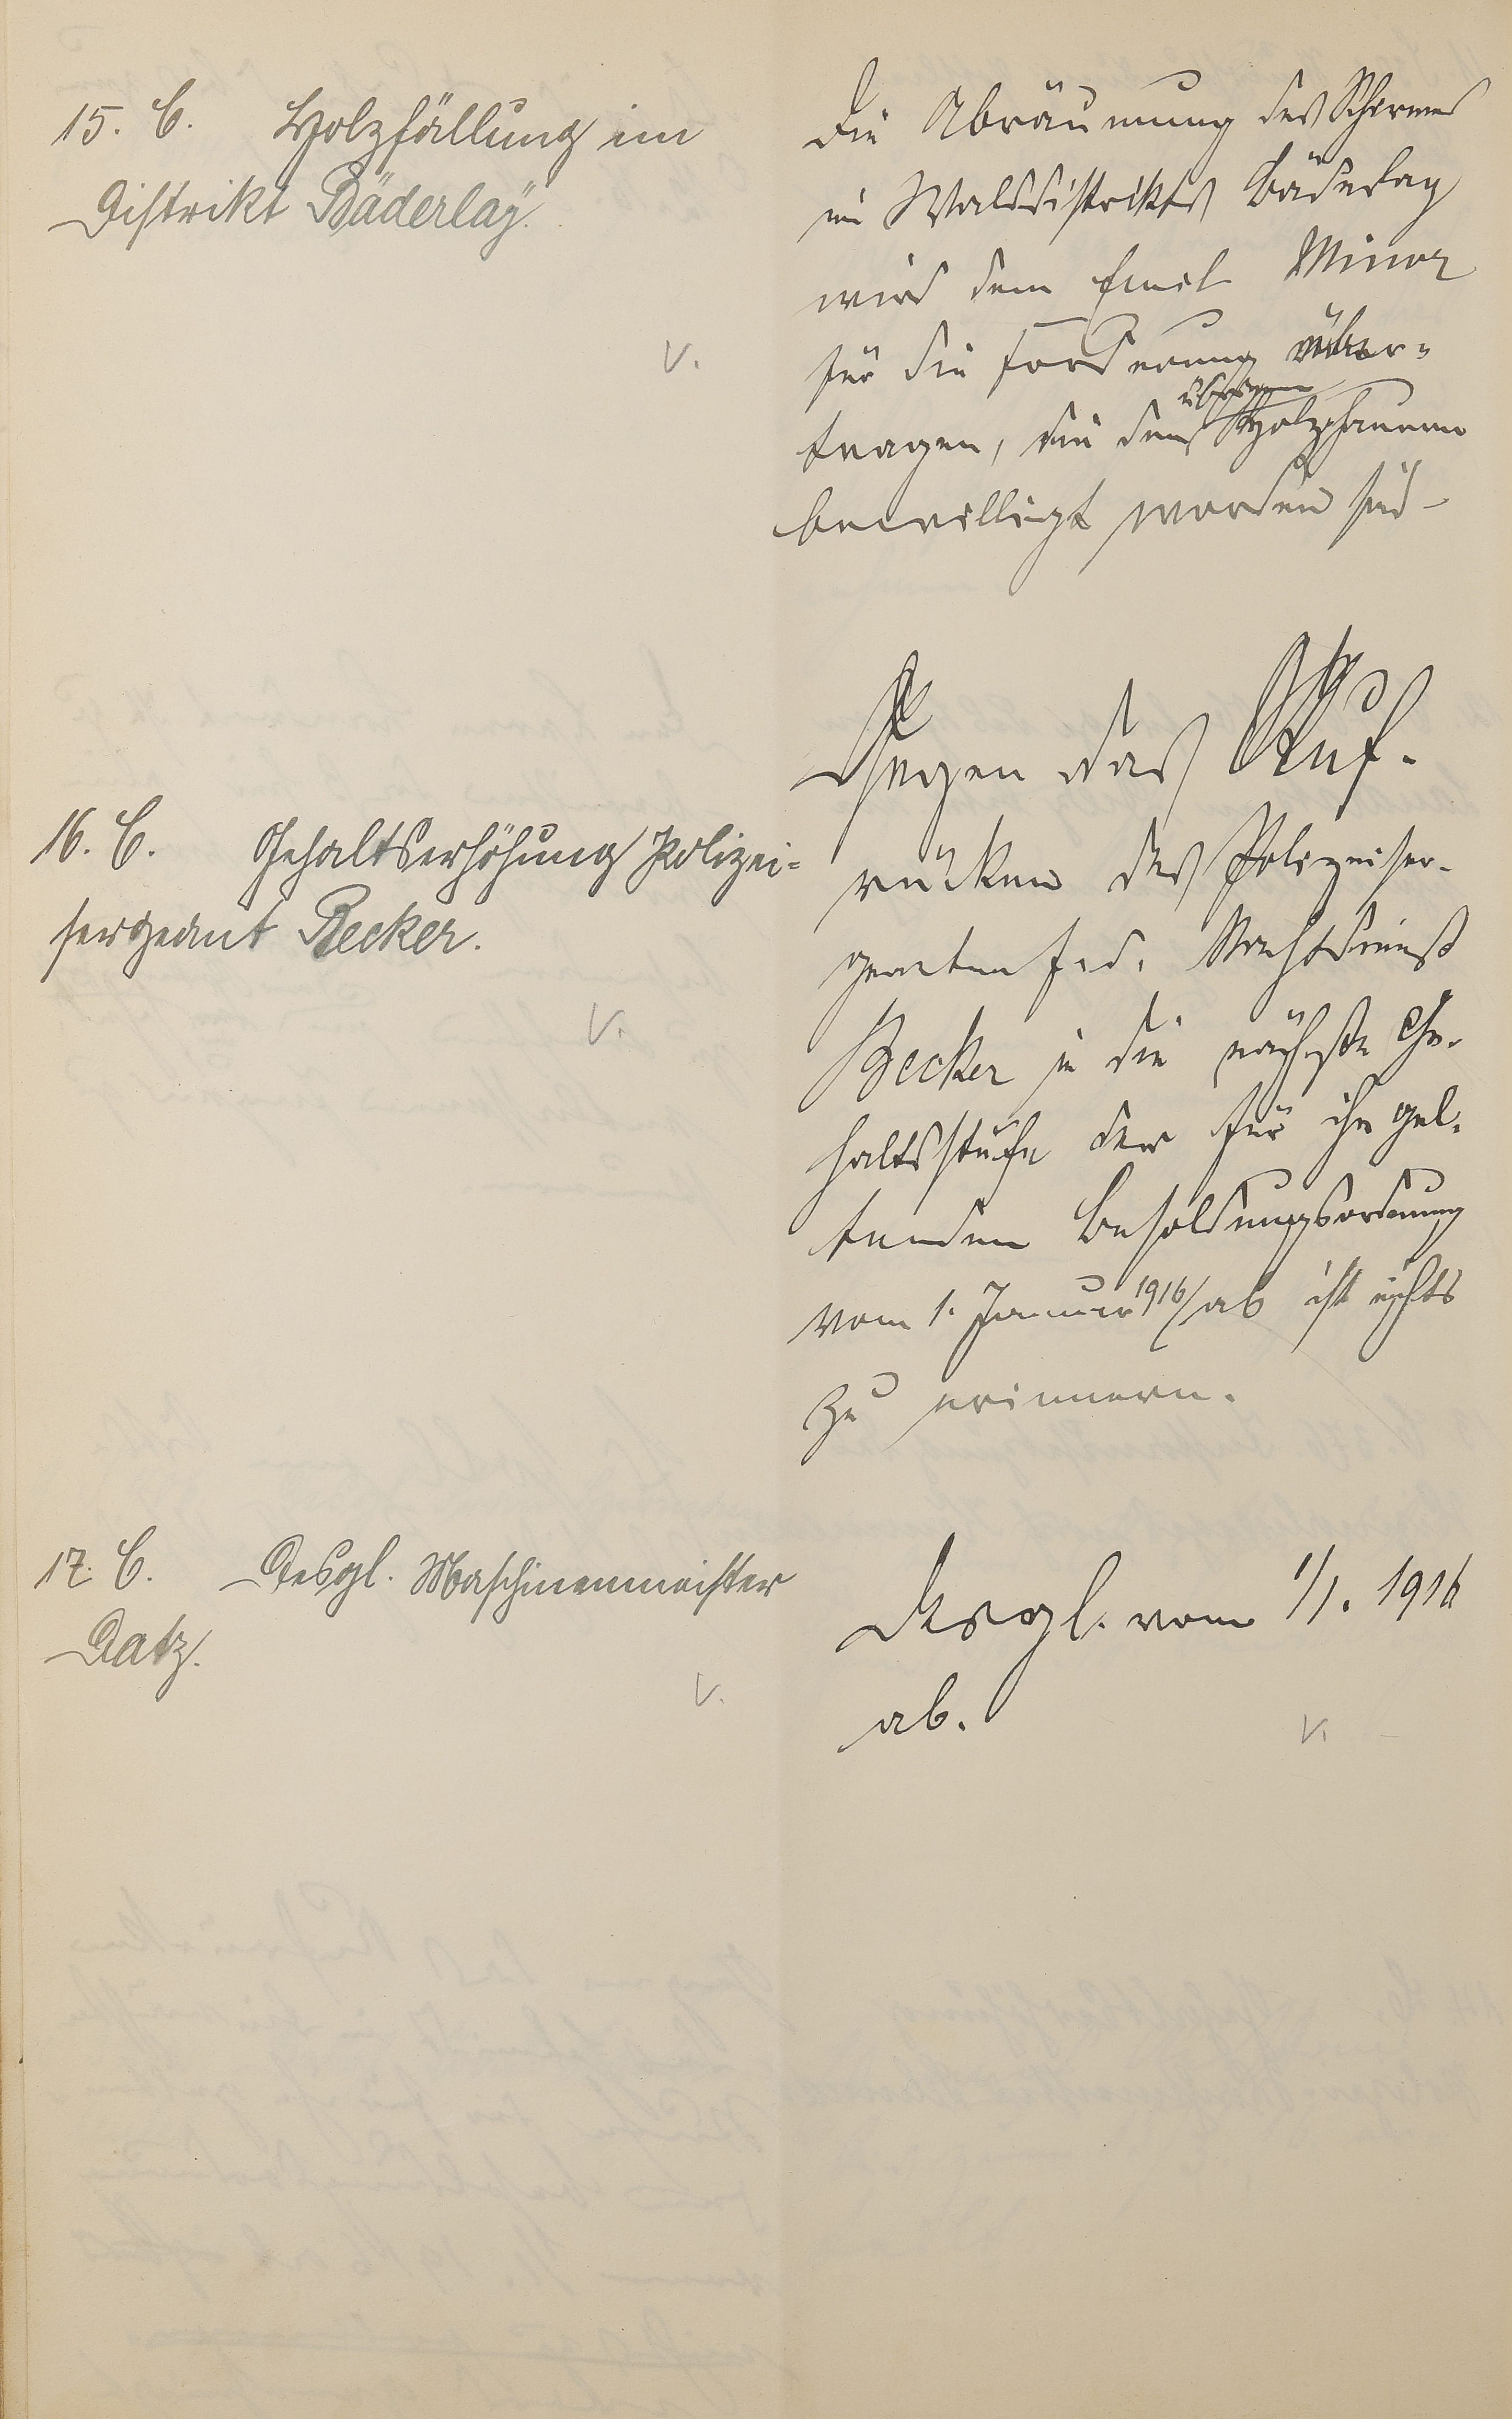 15. C. Holzfällung im
Distrikt Bäderlaÿ.
V.
Die Abräumung des Schirmes
im Walddistrikts Bäderlay
wird dem Emil Minor
für die Forderung über-
tragen, die den übrigen Holzhauern
bewilligt worden sind
16. C. Gehaltserhöhung Polizei-
sergeant Becker.
V.
Gegen das Auf-
rücken des Polizeiser-
geanten f. d. Nachtdienst
Becker in die nächste Ge-
haltsstufe der für ihn gel-
tenden Besoldungsordnung
vom 1. Januar 1916 ab ist nichts
zu erinnern.
17. C. Desgl. Maschinenmeister
Datz.
V.
Desgl. vom 1/1. 1916
ab.
V.